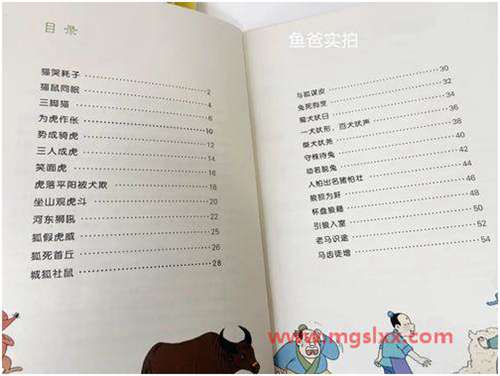 目录
猫哭耗子 2
猫鼠同眠 4
三脚猫 6
为虎作伥 10
势成骑虎 12
三人成虎 14
笑面虎 16
虎落平阳被犬欺 18
坐山观虎斗 20
河东狮吼 22
狐假虎威 25
狐死首丘 26
城狐社鼠 28
鱼爸实拍
与狐谋皮 30
兔死狗烹 32
蜀犬吠日 34
一犬吠形，百犬吠声 36
桀犬吠尧 38
守株待兔 40
动若脱兔 42
人怕出名猪怕壮 44
狼狈为奸 46
杯盘狼藉 48
引狼入室 50
老马识途 52
马齿徒增 54
www.mgslxx.com